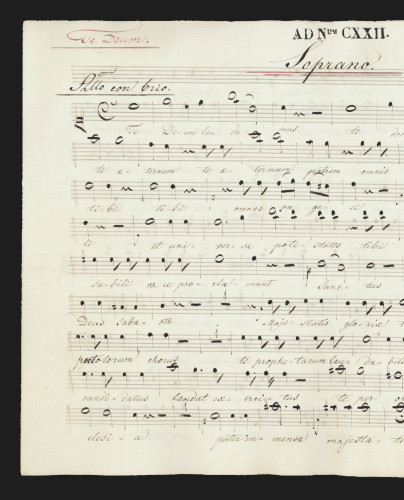 Te Deum.
AD Nrum CXXII.
Soprano.
Allo con brio.
Te De-um lau-da-mus te
te e-ternum te e-ternum patrem omnis
ti-bi ti-bi omnes an-ge-li
ti et uni-ver-sæ pote-states tibi
-sabili vo-ce pro-cla-mant Sanc-tus
Deus saba-oth Maje-statis glo-riæ
-postolorum chorus te prophe-tarum lau-da-bilis
candi-datus laudat ex-erci-tus te per
clesi-a patrem im-mensæ majesta-tis